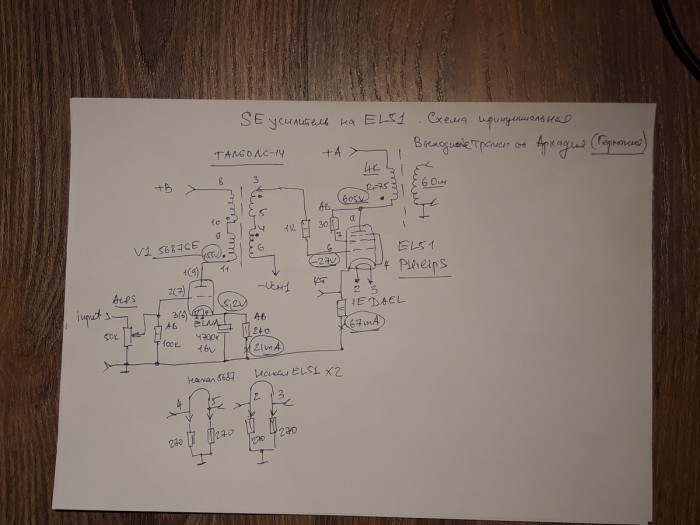 SE усилитель на EL51. Схема принципиальная
Выходные транс от Аркадия (Германия)
TANGO NC-14
+A
4K
R=75
6 Ом
+B
8
3
10
5
9
4
11
6
1K
AB
30
605V
a
7
6
-27V
EL51
PHILIPS
4
2
3
V1 5687GE
155V
1(9)
2(7)
3(6)
-Vсм1
ALPS
input
50K
AB
100K
ELNA
4700x
16V
5,2V
AB
240
21mA
1E DAEL
67mA
Накал 5687
4
5
270
270
Накал EL51 x2
2
3
270
270